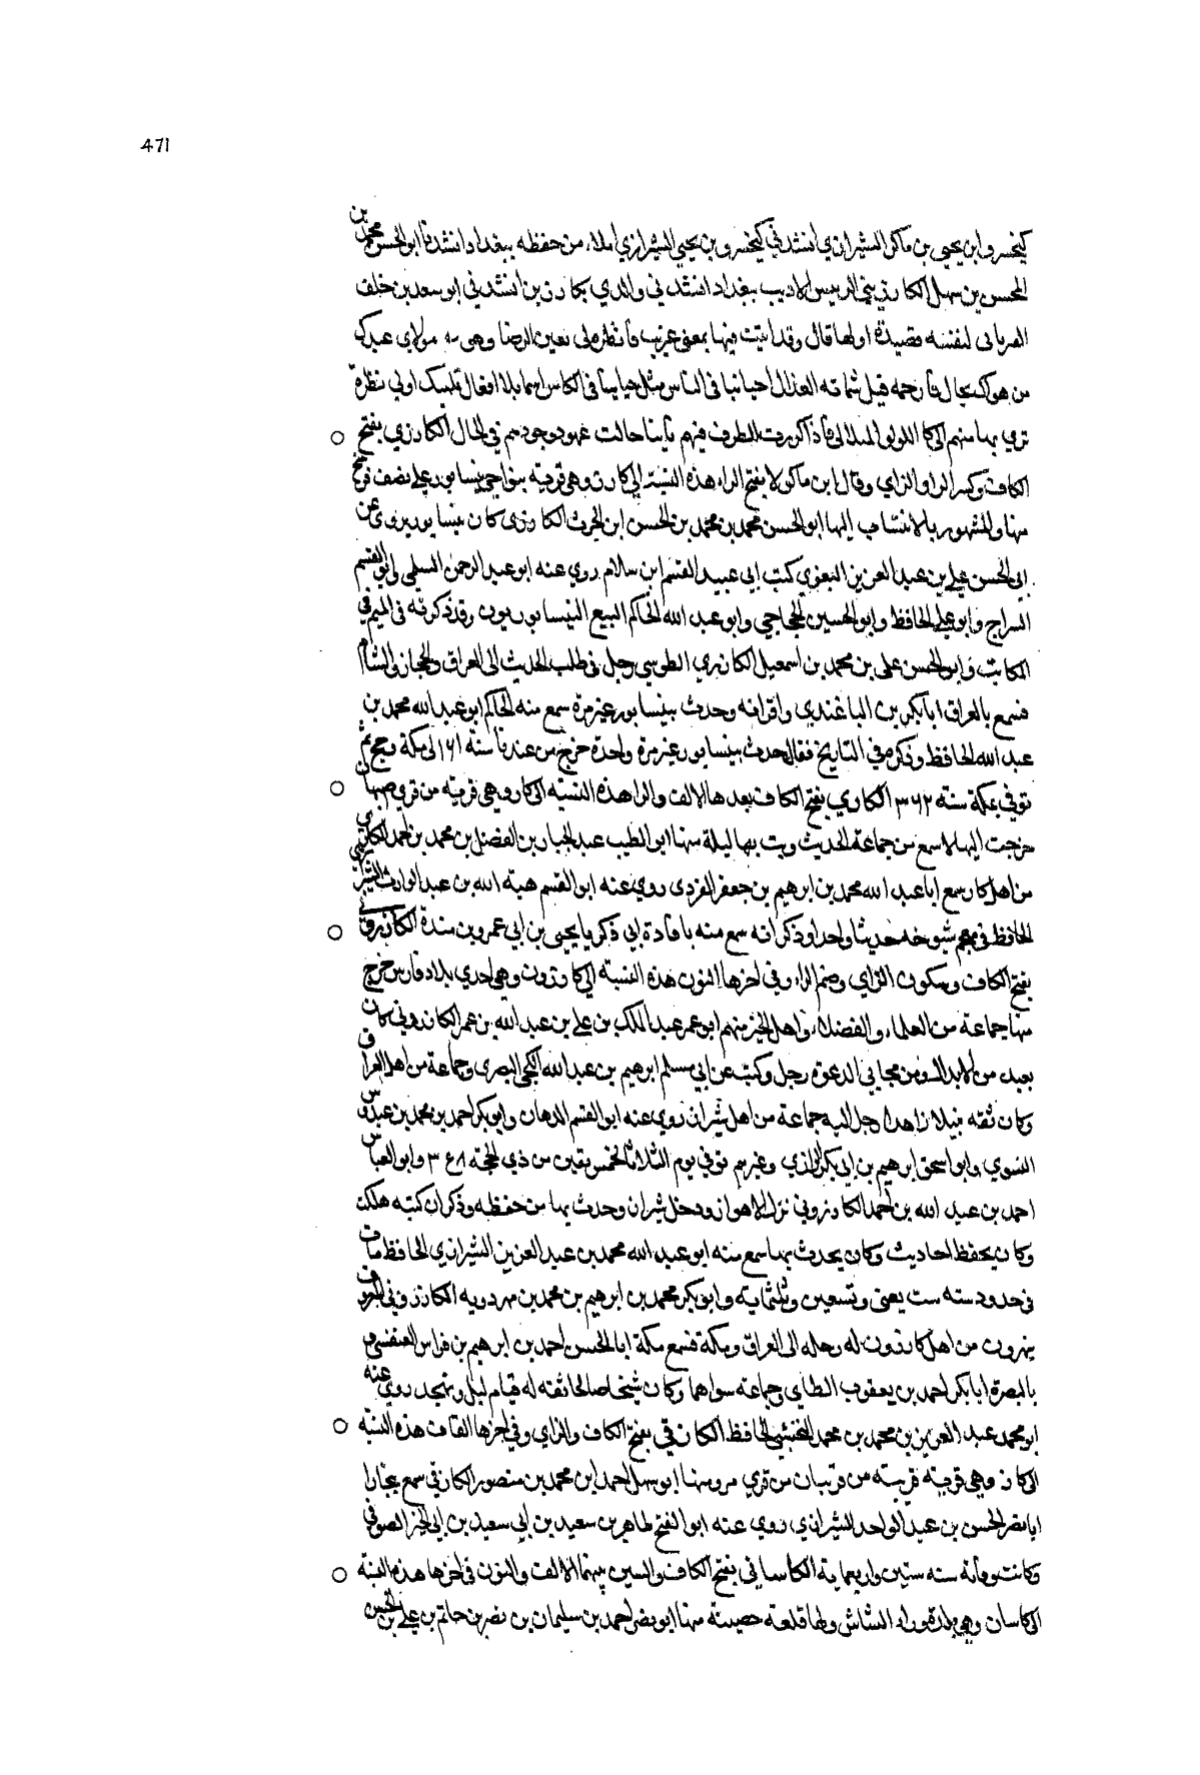 471
كيخسرو ابن يحيى بن ماكي الشيرازي انشدني كيخسرو بن يحيى الشيرازي املاء من حفظه ببغداد انشدنا ابو الحسن محمد بن
المحسن بن سهل الكارزيني الرييس الاديب ببغداد انشدني والدي بكارزين انشدني ابو سعد بن خلف
لنفسه قصيدة اولها قال وقد اتيت فيها بمعنى غريب فانظره الى بعين الرضا وهي مولاي عبدك
من هواك بحال فارحمه قبل شماتة العذال
الكارزي بفتح
الكاف وكسر الراو الزاي وقال ابن ماكولا بفتح الراء هذه النسبة الى كارز وهي قرية بنواحي نيسابور على نصف فرسخ
منها والمشهور بالانتساب اليها ابو الحسن محمد بن محمد بن الحسن ابن الحرث الكارزي كان بنيسابور يروي عن
ابي الحسن علي بن عبد العزيز البغوي كتب ابي عبيد القسم ابن سلام روي عنه ابو عبد الرحمن السلمي وابو القسم
السراج وابو علي الحافظ وابو الحسين الحجاجي وابو عبد الله الحاكم البيع النيسابوريون وقد ذكرته في الميم في
الكابت وابو الحسن علي بن محمد بن اسمعيل الكارزي الطوسي رحل في طلب الحديث الى العراق والحجاز والشام
فسمع بالعراق ابا بكر بن الباغندي واقرانه وحدث بنيسابور غير مرة سمع منه الحاكم ابو عبد الله محمد بن
عبد الله الحافظ وذكره في التاريخ فقال حدث بنيسابور غير مرة واحدة خرج من عندنا سنة ١٦١ الى مكة وحج ثم
توفي بمكة سنة ٣٦٢ الكاري بفتح الكاف بعدها الالف والرا هذه النسبة الى كار وهي قرية من قري اصبهان
خرجت اليها لاسمع من جماعة الحديث وبت بها ليلة منها ابو الطيب عبد الجبار بن الفضل بن محمد بن احمد الكاري
من اهل كار سمع ابا عبد الله محمد بن ابرهيم بن جعفر اليزدي روي عنه ابو القسم هبة الله بن عبد الوارث الشيرازي
الحافظ في معجم شيوخه حديثا واحدا وذكر انه سمع منه بافادة ابي ذكريا يحيى بن ابي عمرو بن مندة الكازروني
بفتح الكاف وسكون الزاي وضم الراء وفي اخرها النون هذه النسبة الى كازرون وهي احدي بلاد فارس خرج
منها جماعة من العلماء والفضلاء واهل الخير منهم ابو عمر عبد الملك بن علي بن عبد الله بن عمر الكازروني كان
يعد من الابدال ومن مجابي الدعوة رحل وكتب عن ابي مسلم ابرهيم بن عبد الله الكجي البصري وجماعة من اهل العراق
وكان ثقه نبيلا زاهدا رحل اليه جماعة من اهل شيراز روي عنه ابو القسم الدهان وابو بكر احمد بن محمد بن عبدوس
النسوي وابو اسحق ابرهيم بن ابي بكر الرازي وغيرهم توفي يوم الثلاثا لخمس بقين من ذي الحجة ٣٤٨ وابو العباس
احمد بن عبيد الله بن احمد الكازروني نزل الاهواز ودخل شيراز وحدث بها من حفظه وذكر ان كتبه هلكت
وكان يحفظ احاديث وكان يحدث بها سمع منه ابو عبد الله محمد بن عبد العزيز الشيرازي الحافظ مات
في حدود سنه ست يعني وتسعين وثلثماية وابو بكر محمد بن ابرهيم بن محمد بن مهردويه الكازروني المعروف
من اهل كازرون له رحله الى العراق ومكة فسمع بمكة ابا الحسن احمد بن ابرهيم بن فراس العبقسي و
بالبصرة ابا بكر احمد بن يعقوب الطايي وجماعة سواهما وكان شيخا صالحا ثقه له قيام ليل وتهجد روي عنه
ابو محمد عبد العزيز بن محمد بن محمد النخشبي الحافظ الكازقي بفتح الكاف والزاي وفي اخرها القاف هذه النسبة
الى كازق وهي قرية قريبة من قري مرو منها ابو سهل احمد ابن محمد بن منصور الكازقي سمع ببخارا
ابا نصر الحسن بن عبد الواحد الشيرازي روي عنه ابو الفتح طاهر بن سعيد بن ابي سعيد بن ابي الخير الصوفي
وكانت وفاته سنه ستين واربعماية الكاساني بفتح الكاف والسين بينهما الالف والنون في اخرها هذه النسبة
الى كاسان وهي بلدة وراء الشاش ولها قلعة حصينة منها ابو نصر احمد بن سليمان بن نصر بن حاتم بن علي بن الحسن